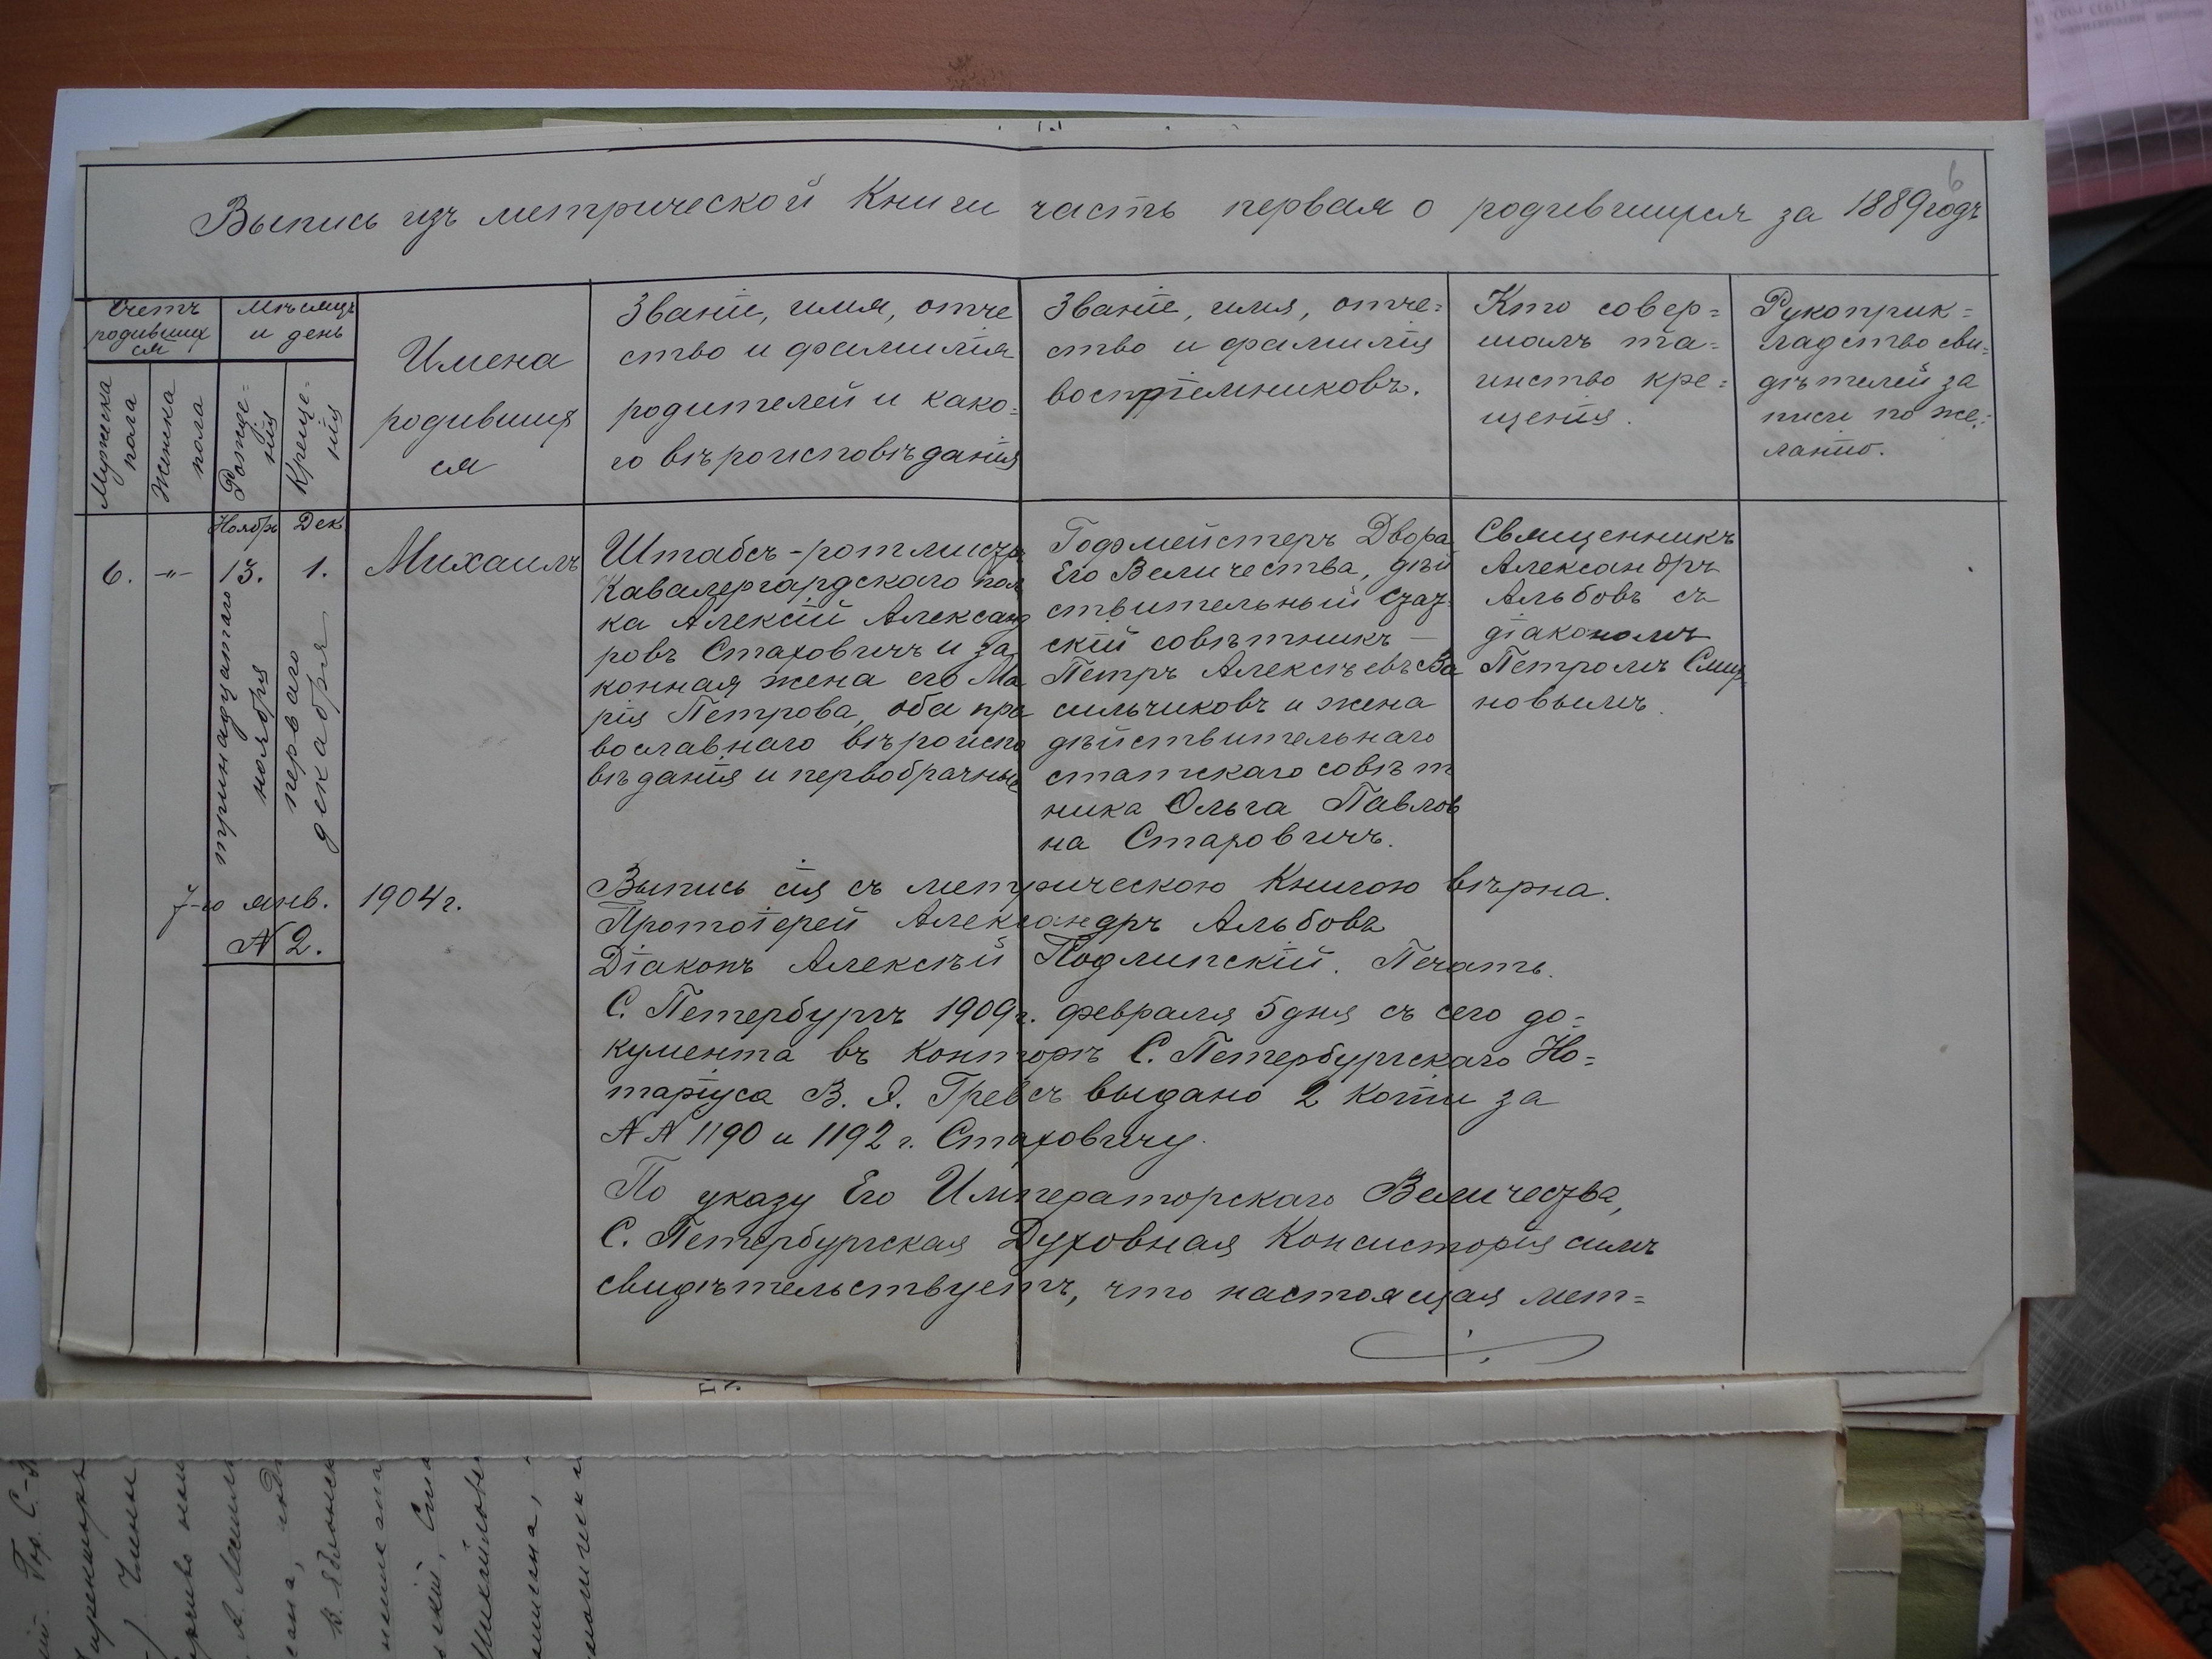 6
Выпись изъ метрической Книги часть первая о родившихся за 1889 годъ
Счетъ
родивших
ся
Мѣсяцъ
и день
Мужеска
пола
Женска
пола
Рожде-
нія
Креще-
нія
Имена
родивших
ся
Званіе, имя, отче
ство и фамилія
родителей и како-
го вѣроисповѣданія
Званіе, имя, отче=
ство и фамилія
воспріемниковъ.
Кто совер=
шалъ та=
инство кре=
щенія.
Рукоприк=
ладство сви=
дѣтелей за
писи по же=
ланію.
6.
-"-
Ноябрь
13.
тринадцатаго
ноября
Дек
1.
перваго
декабря
Михаилъ
Штабсъ-ротмистръ
Кавалергардскаго пол
ка Алексій Александ
ровъ Стаховичъ и за
конная жена его Ма
рія Петрова, оба пра
вославнаго вѣроиспо
вѣданія и первобрачные
Гофмейстеръ Двора
Его Величества, дѣй
ствительный стат
скій совѣтникъ —
Петръ Алексѣевъ Ва
сильчиковъ и жена
дѣйствительнаго
статскаго совѣт
ника Ольга Павлов
на Стаховичъ.
Священникъ
Александръ
Альбовъ съ
діакономъ
Петромъ Смир
новымъ.
7-го янв. 1904 г.
№ 2.
Выпись сія съ метрическою Книгою вѣрна.
Протоіерей Александръ Альбовъ
Діаконъ Алексѣй Подлипскій. Печать.
С. Петербургъ 1909 г. февраля 5 дня съ сего до=
кумента въ Конторѣ С. Петербургскаго Но=
таріуса В. Я. Гревсъ выдано 2 копіи за
№№ 1190 и 1192 г. Стаховичу.
По указу Его Императорскаго Величества,
С. Петербургская Духовная Консисторія симъ
свидѣтельствуетъ, что настоящая мет=